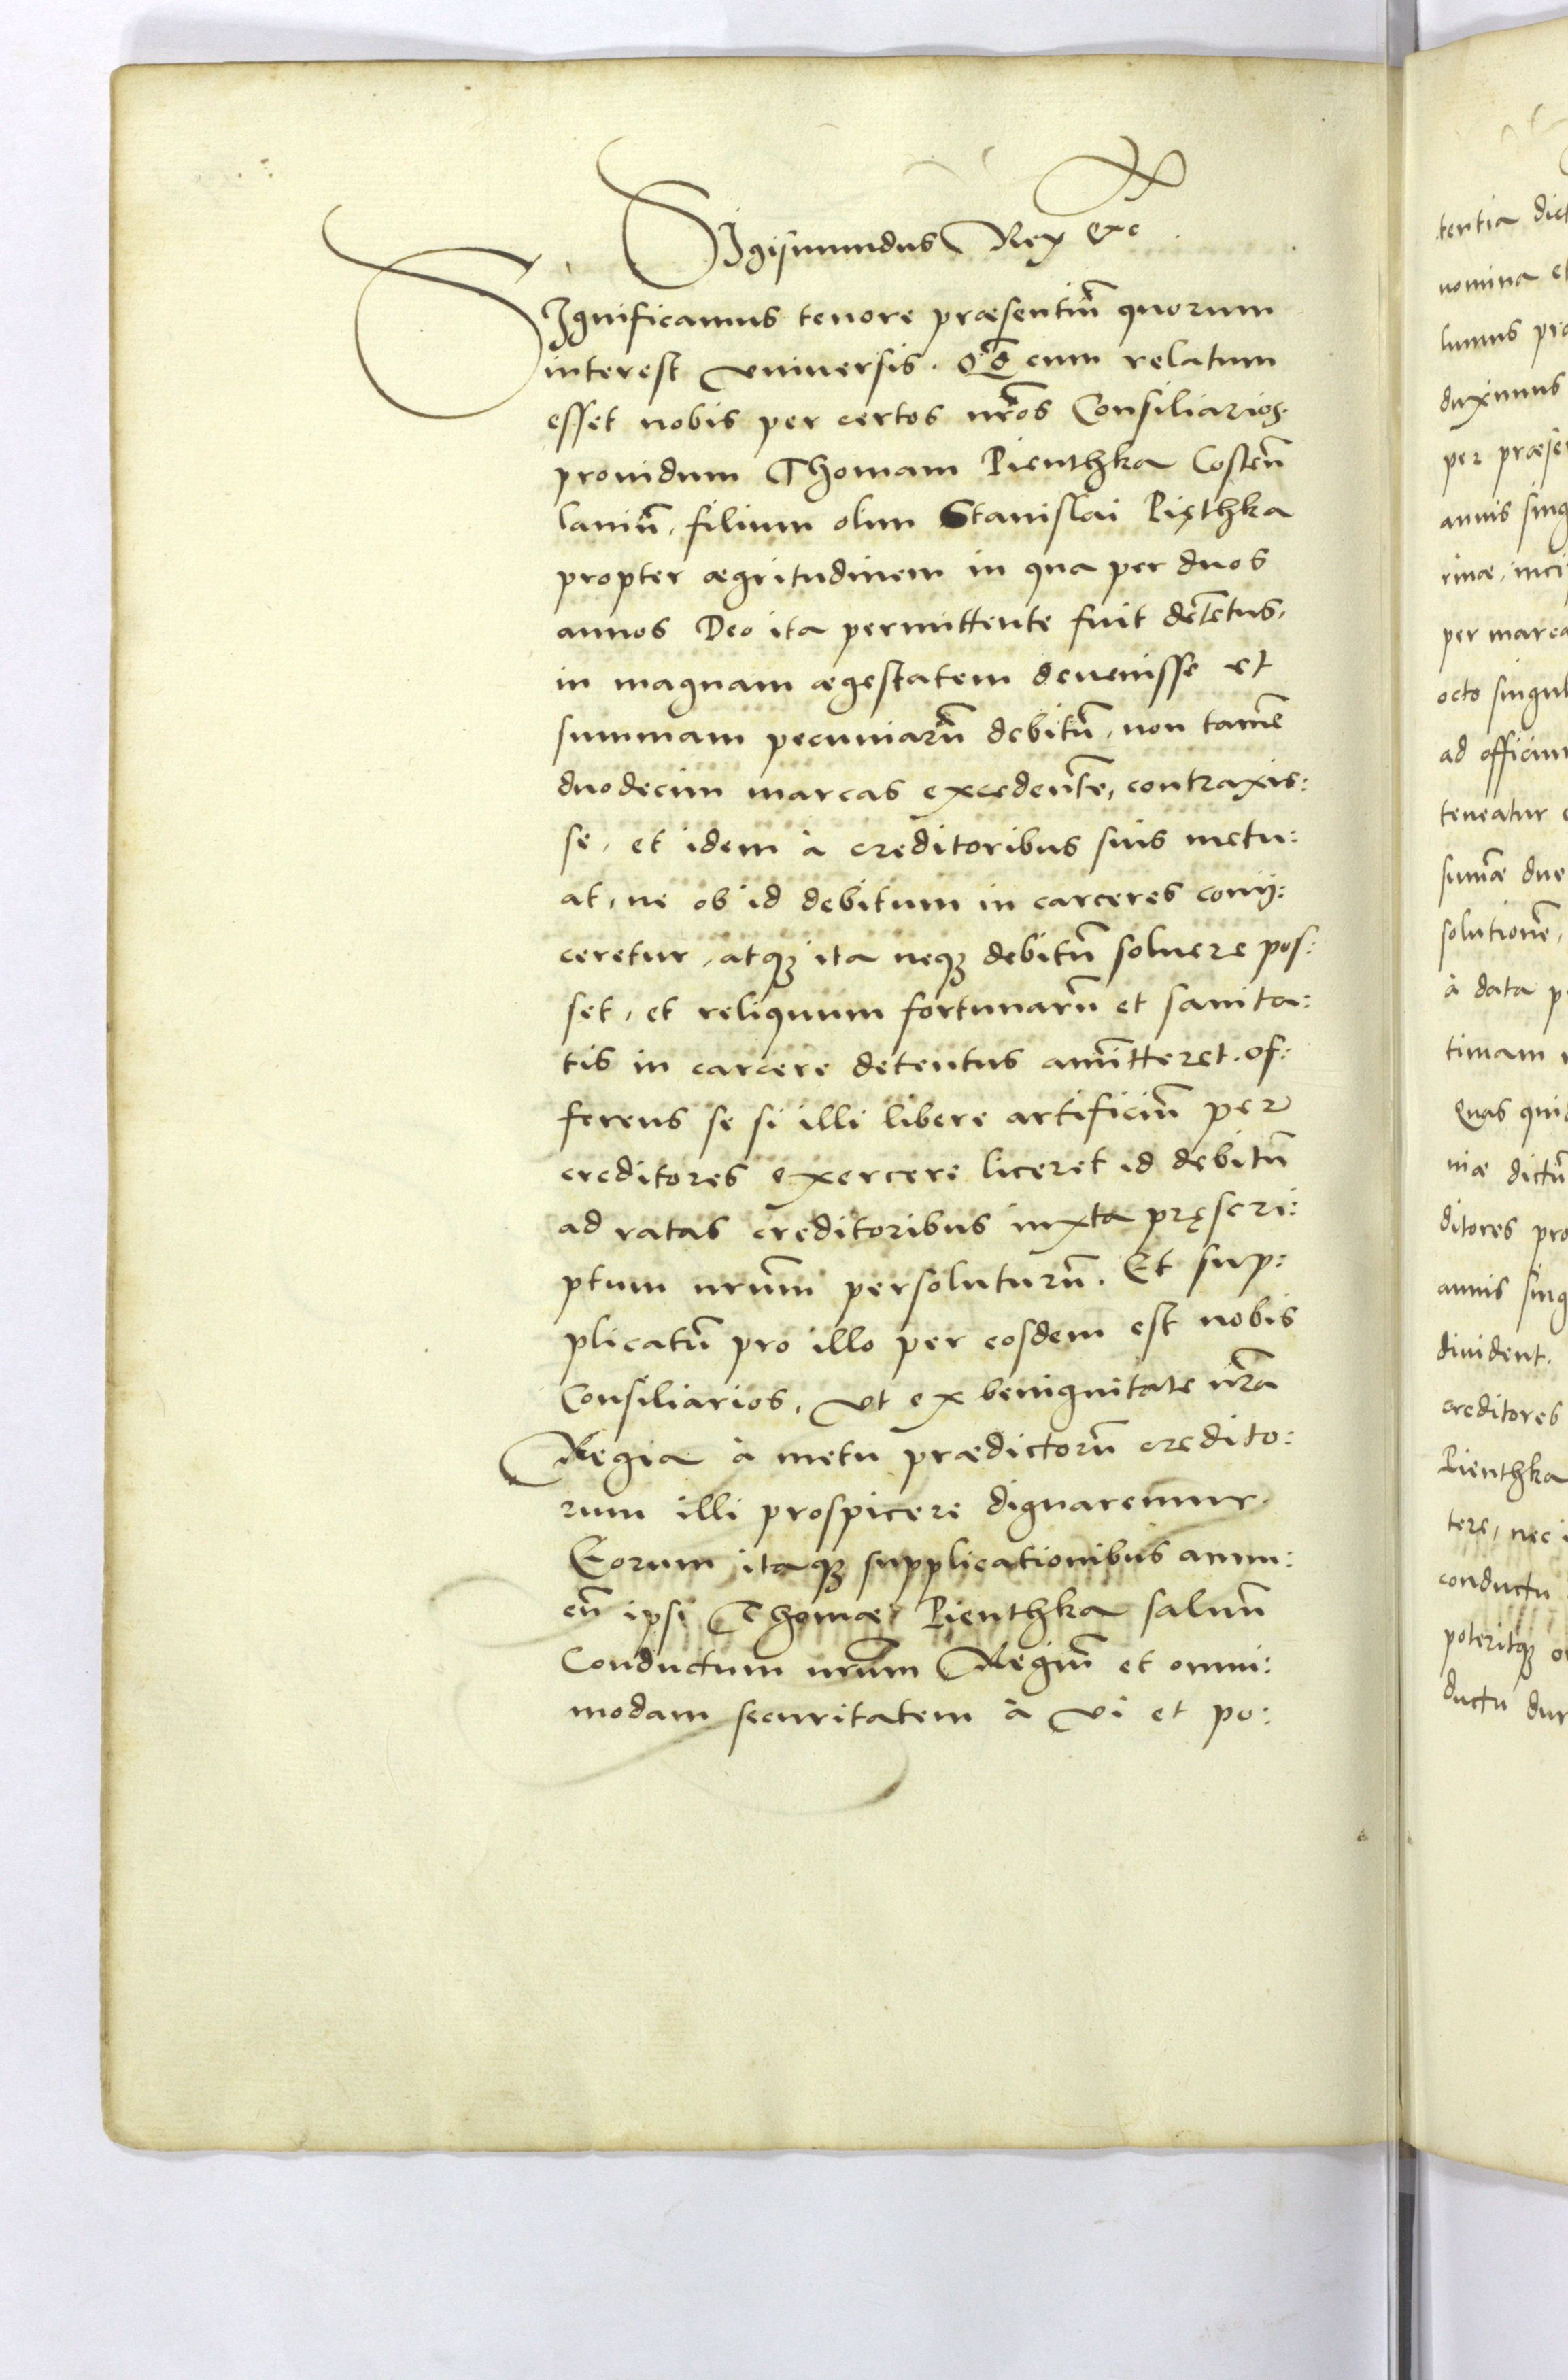 Sigismundus Rex &c
Significamus tenore præsentiu̅ quorum
interest vniuersis. Q̅d cum relatum
esset nobis per certos nr̅os Consiliarios.
prouidum Thomam Pienthka Costen̅
laniu̅, filium olim Stanislai Pięthka
propter ægritudinem in qua per duos
annos Deo ita permittente fuit dete̅tus,
in magnam ægestatem deuenisse et
summam pecuniaru̅ debitu̅, non tame̅
duodecim marcas excedente̅, contraxis:
se, et idem à creditoribus suis metu:
at, ne ob id debitum in carceres conij:
ceretur, atq3 ita neq3 debitu̅ soluere pos:
set, et reliquum fortunaru̅ et sanita:
tis in carcere detentus amitteret. of:
ferens se si illi libere artificiu̅ per
creditores exercere liceret id debitu̅
ad ratas creditoribus iuxta pręscri:
ptum nr̅um persoluturu̅. Et sup:
plicatu̅ pro illo per eosdem est nobis
Consiliarios, vt ex benignitate nr̅a
Regia à metu prædictoru̅ credito:
rum illi prospicere dignaremur.
Eorum itaq3 supplicationibus annu:
en̅ ipsi Thomæ Pienthka saluu̅
Conductum nr̅um Regiu̅ et omni:
modam securitatem à vi et po:
tentia dict
nomina et
lumus pro
duximus
per præsen
annis sing
rinæ, inci
per marca
octo singul
ad officium
teneatur
sum̅æ due
solutione̅,
à data p
timam
Quas qui
niæ dictu̅
ditores pro
annis sing
diuident.
creditores
Pienthka
tere, nec i
conductu
poteritq3
ductu dur